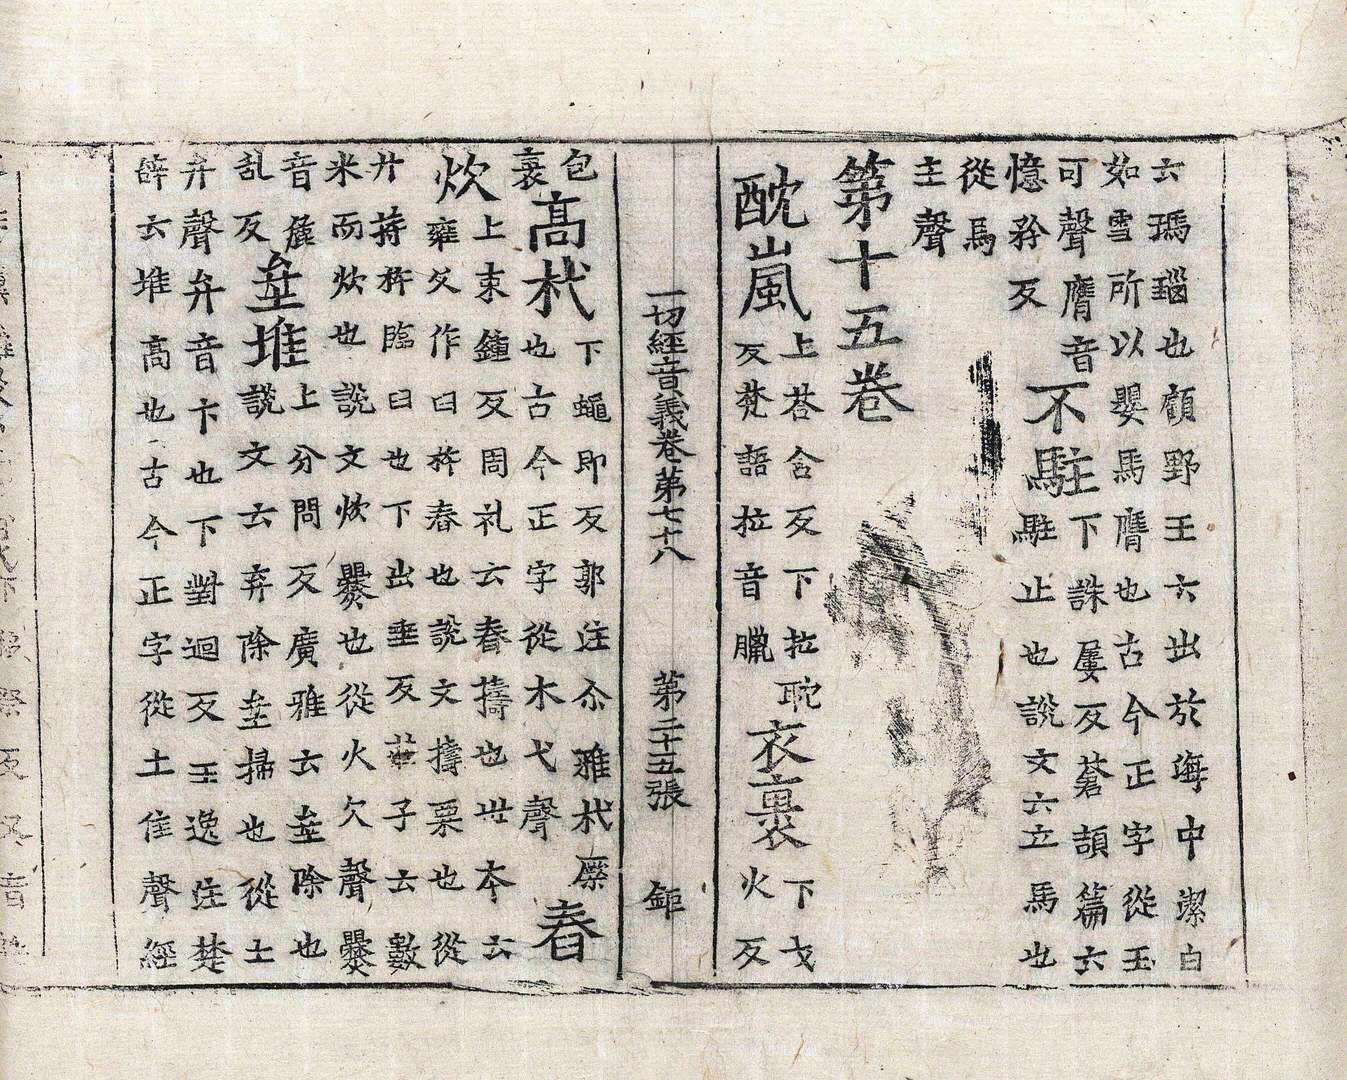 云瑪瑙也顧野王云出於海中潔白
如雪所以嬰馬膺也古今正字從玉
可聲膺音
憶矜反
不駐
下誅屢反蒼頡篇云
駐止也說文云立馬也
從馬
主聲
第十五卷
酖嵐
上荅含反下拉耽
反梵語拉音臘
衣裹
下戈
火反
一切經音義卷苐七十八 苐二十五張 鉅
包
裹
高杙
下蠅即反郭注尒雅杙橜
也古今正字從木弋聲
舂
炊
上束鍾反周礼云舂擣也世本云
雍父作臼杵舂也說文擣粟也從
廾持杵臨臼也下出垂反莊子云數
米而炊也說文炊爨也從火欠聲爨
音麁
乱反
坌堆
上分問反廣雅云坌除也
說文云弃除坌掃也從土
弁聲弁音卞也下對迴反王逸注楚
辝云堆高也古今正字從土隹聲經